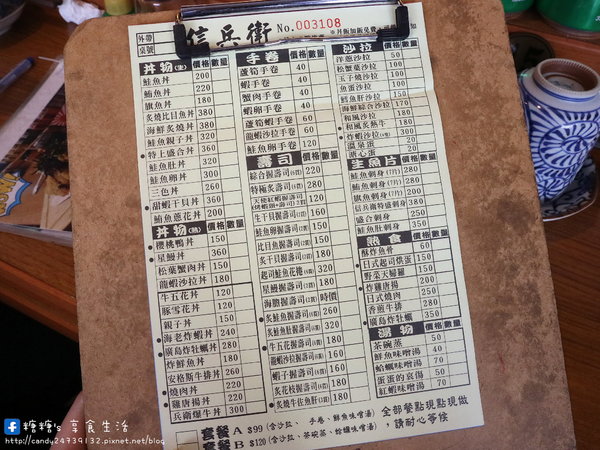 外帶
桌號
信兵衛
No. 003108
丼物(生) 價格 數量
鮭魚丼 200
鮪魚丼 220
旗魚丼 180
炙燒比目魚丼 380
海鮮炙燒丼 360
鮭魚親子丼 320
特上盛合丼 360
鮭魚肚丼 320
鮭魚卵丼 300
三色丼 260
甜蝦干貝丼 360
鮪魚蔥花丼 200
丼物(熟) 價格 數量
櫻桃鴨丼 150
星鰻丼 360
松葉蟹肉丼 150
龍蝦沙拉丼 180
牛五花丼 120
豚雪花丼 120
親子丼 150
海老炸蝦丼 240
廣島炸牡蠣丼 280
炸鮮魚丼 180
安格斯牛排丼 260
燒肉丼 220
雞唐揚丼 220
兵衛爆牛丼 300
手卷 價格 數量
蘆筍手卷 40
蝦手卷 40
蟹肉手卷 40
蝦卵手卷 40
蘆筍蝦手卷 60
龍蝦沙拉手卷 60
鮭魚卵手卷 120
壽司 價格 數量
綜合握壽司 220
特極炙壽司 280
生干貝握壽司 160
鮭魚卵握壽司 150
比目魚握壽司
炙干貝握壽司
起司鮭魚花捲 320
星鰻握壽司 180
海膽握壽司 時價
炙鮭魚握壽司
炙鮭魚肚握壽司 320
牛五花握壽司
龍蝦沙拉握壽司 180
蝦子握壽司 160
炙花枝握壽司 180
炙燒牛佐魚肝 340
沙拉 價格 數量
洋蔥沙拉 50
松葉蟹沙拉 100
玉子燒沙拉 50
魚蛋沙拉 50
鱈魚肝沙拉 150
海鮮綜合沙拉 170
和風沙拉 100
和風炙熱牛 180
炸蝦沙拉 300
溫泉蛋 20
溏心蛋 20
生魚片 價格 數量
鮭魚刺身(7片) 280
鮪魚刺身(7片) 280
旗魚刺身(7片) 180
信兵衛特盛刺身 350
盛合刺身 250
鮭魚肚刺身 350
熟食 價格 數量
酥炸魚骨 60
日式起司烘蛋 150
野菜天婦羅 150
炸雞唐揚 200
日式燒肉 200
香煎牛排 280
廣島炸牡蠣 350
湯物 價格 數量
茶碗蒸 40
鮮魚味噌湯 50
蛤蠣味噌湯 70
蛋蛋的哀湯 50
紅蝦味噌湯 70
套餐 A $99 (含沙拉、手卷、鮮魚味噌湯)
套餐 B $120 (含沙拉、茶碗蒸、蛤蠣味噌湯)
全部餐點現點現做
，請耐心等候
糖糖's 享食生活
http://candy24739132.pixnet.net/blog